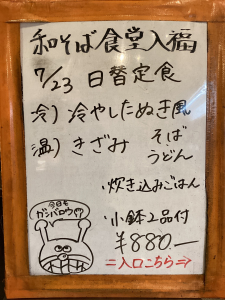 和そば食堂入福
7/23 日替定食
冷) 冷やしたぬき風
温) きざみ そば
うどん
・炊き込みごはん
・小鉢2品付
¥880.—
=入口こちら⇒
今日も
ガンバロウ!?